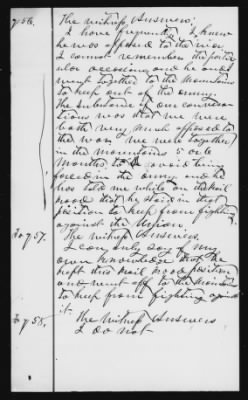 756.
The witness Answers;
I have frequently. I know
he was opposed to the war.
I cannot remember the partic
ular occasions, and he and I
went together to the mountains
to keep out of the army.
The substance of our conversa-
tions was that we were
both very much opposed to
the war. We were together
in the mountains 5 or 6
months, to avoid being
forced in the army, and he
has told me while on the Rail
Road that he staid in that
position to keep from fighting
against the Union.
To 757.
The witness Answers.
I can only say of my
own knowledge that he
left this Rail Road position
and went off to the Mountains
to keep from fighting against
it.
To 758.
The witness Answers
I do not